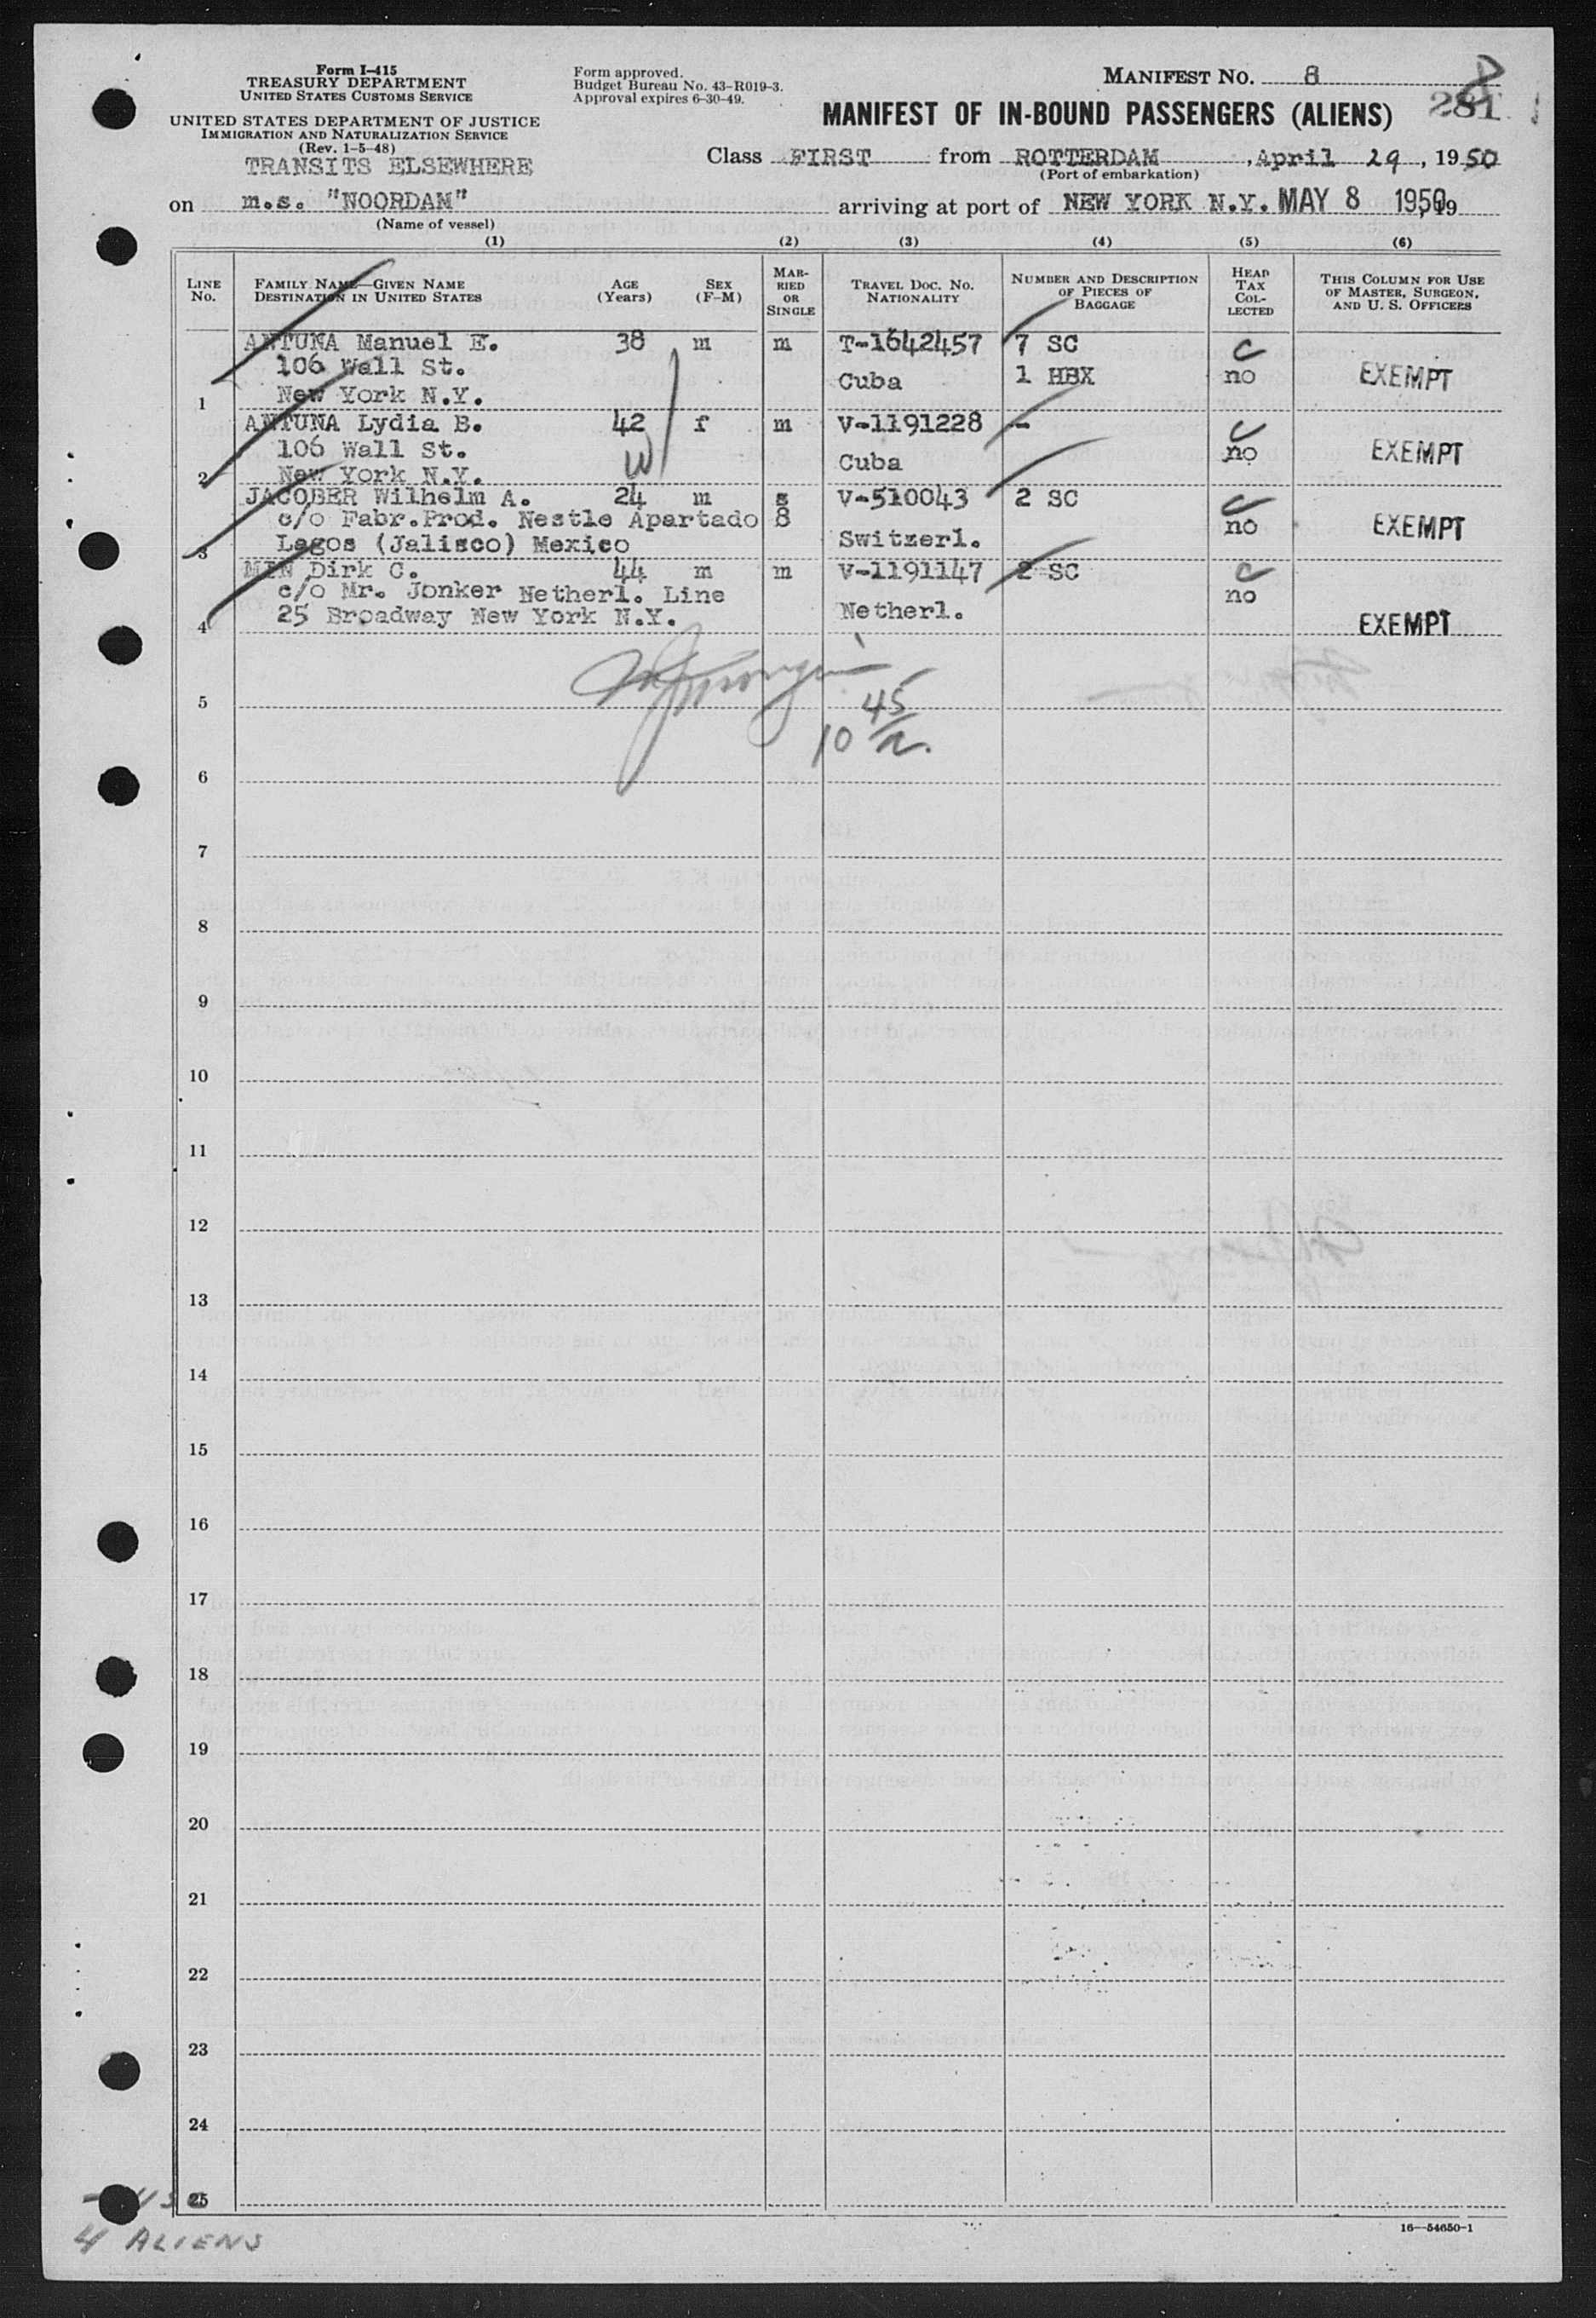 Form I-415
TREASURY DEPARTMENT
UNITED STATES CUSTOMS SERVICE
UNITED STATES DEPARTMENT OF JUSTICE
IMMIGRATION AND NATURALIZATION SERVICE
(Rev. 1-5-48)
TRANSITS ELSEWHERE
Form approved.
Budget Bureau No. 43-R019-3.
Approval expires 6-30-49.
MANIFEST NO. 8
8
281
MANIFEST OF IN-BOUND PASSENGERS (ALIENS)
Class FIRST from ROTTERDAM, April 29, 1950
(Port of embarkation)
on m.s. "NOORDAM" arriving at port of NEW YORK N.Y. MAY 8 1950, 19
(Name of vessel)
(1) (2) (3) (4) (5) (6)
LINE No. FAMILY NAME—GIVEN NAME DESTINATION IN UNITED STATES AGE (Years) SEX (F-M) MARRIED OR SINGLE TRAVEL DOC. NO. NATIONALITY NUMBER AND DESCRIPTION OF PIECES OF BAGGAGE HEAD TAX COLLECTED THIS COLUMN FOR USE OF MASTER, SURGEON, AND U. S. OFFICERS
ANTUNA Manuel E. 38 m m T-1642457 7 SC
106 Wall St. Cuba 1 HBX no EXEMPT
1 New York N.Y.
ANTUNA Lydia B. 42 f m V-1191228 -
106 Wall St. Cuba no EXEMPT
2 New York N.Y.
W
JACOBER Wilhelm A. 24 m s V-510043 2 SC
c/o Fabr.Prod. Nestle Apartado 8 no EXEMPT
3 Lagos (Jalisco) Mexico Switzerl.
MEN Dirk C. 44 m m V-1191147 2 SC
c/o Mr. Jonker Netherl. Line no
4 25 Broadway New York N.Y. Netherl. EXEMPT
5
10 45/a.
6
7
8
9
10
11
12
13
14
15
16
17
18
19
20
21
22
23
24
25
4 ALIENS
16—54650-1